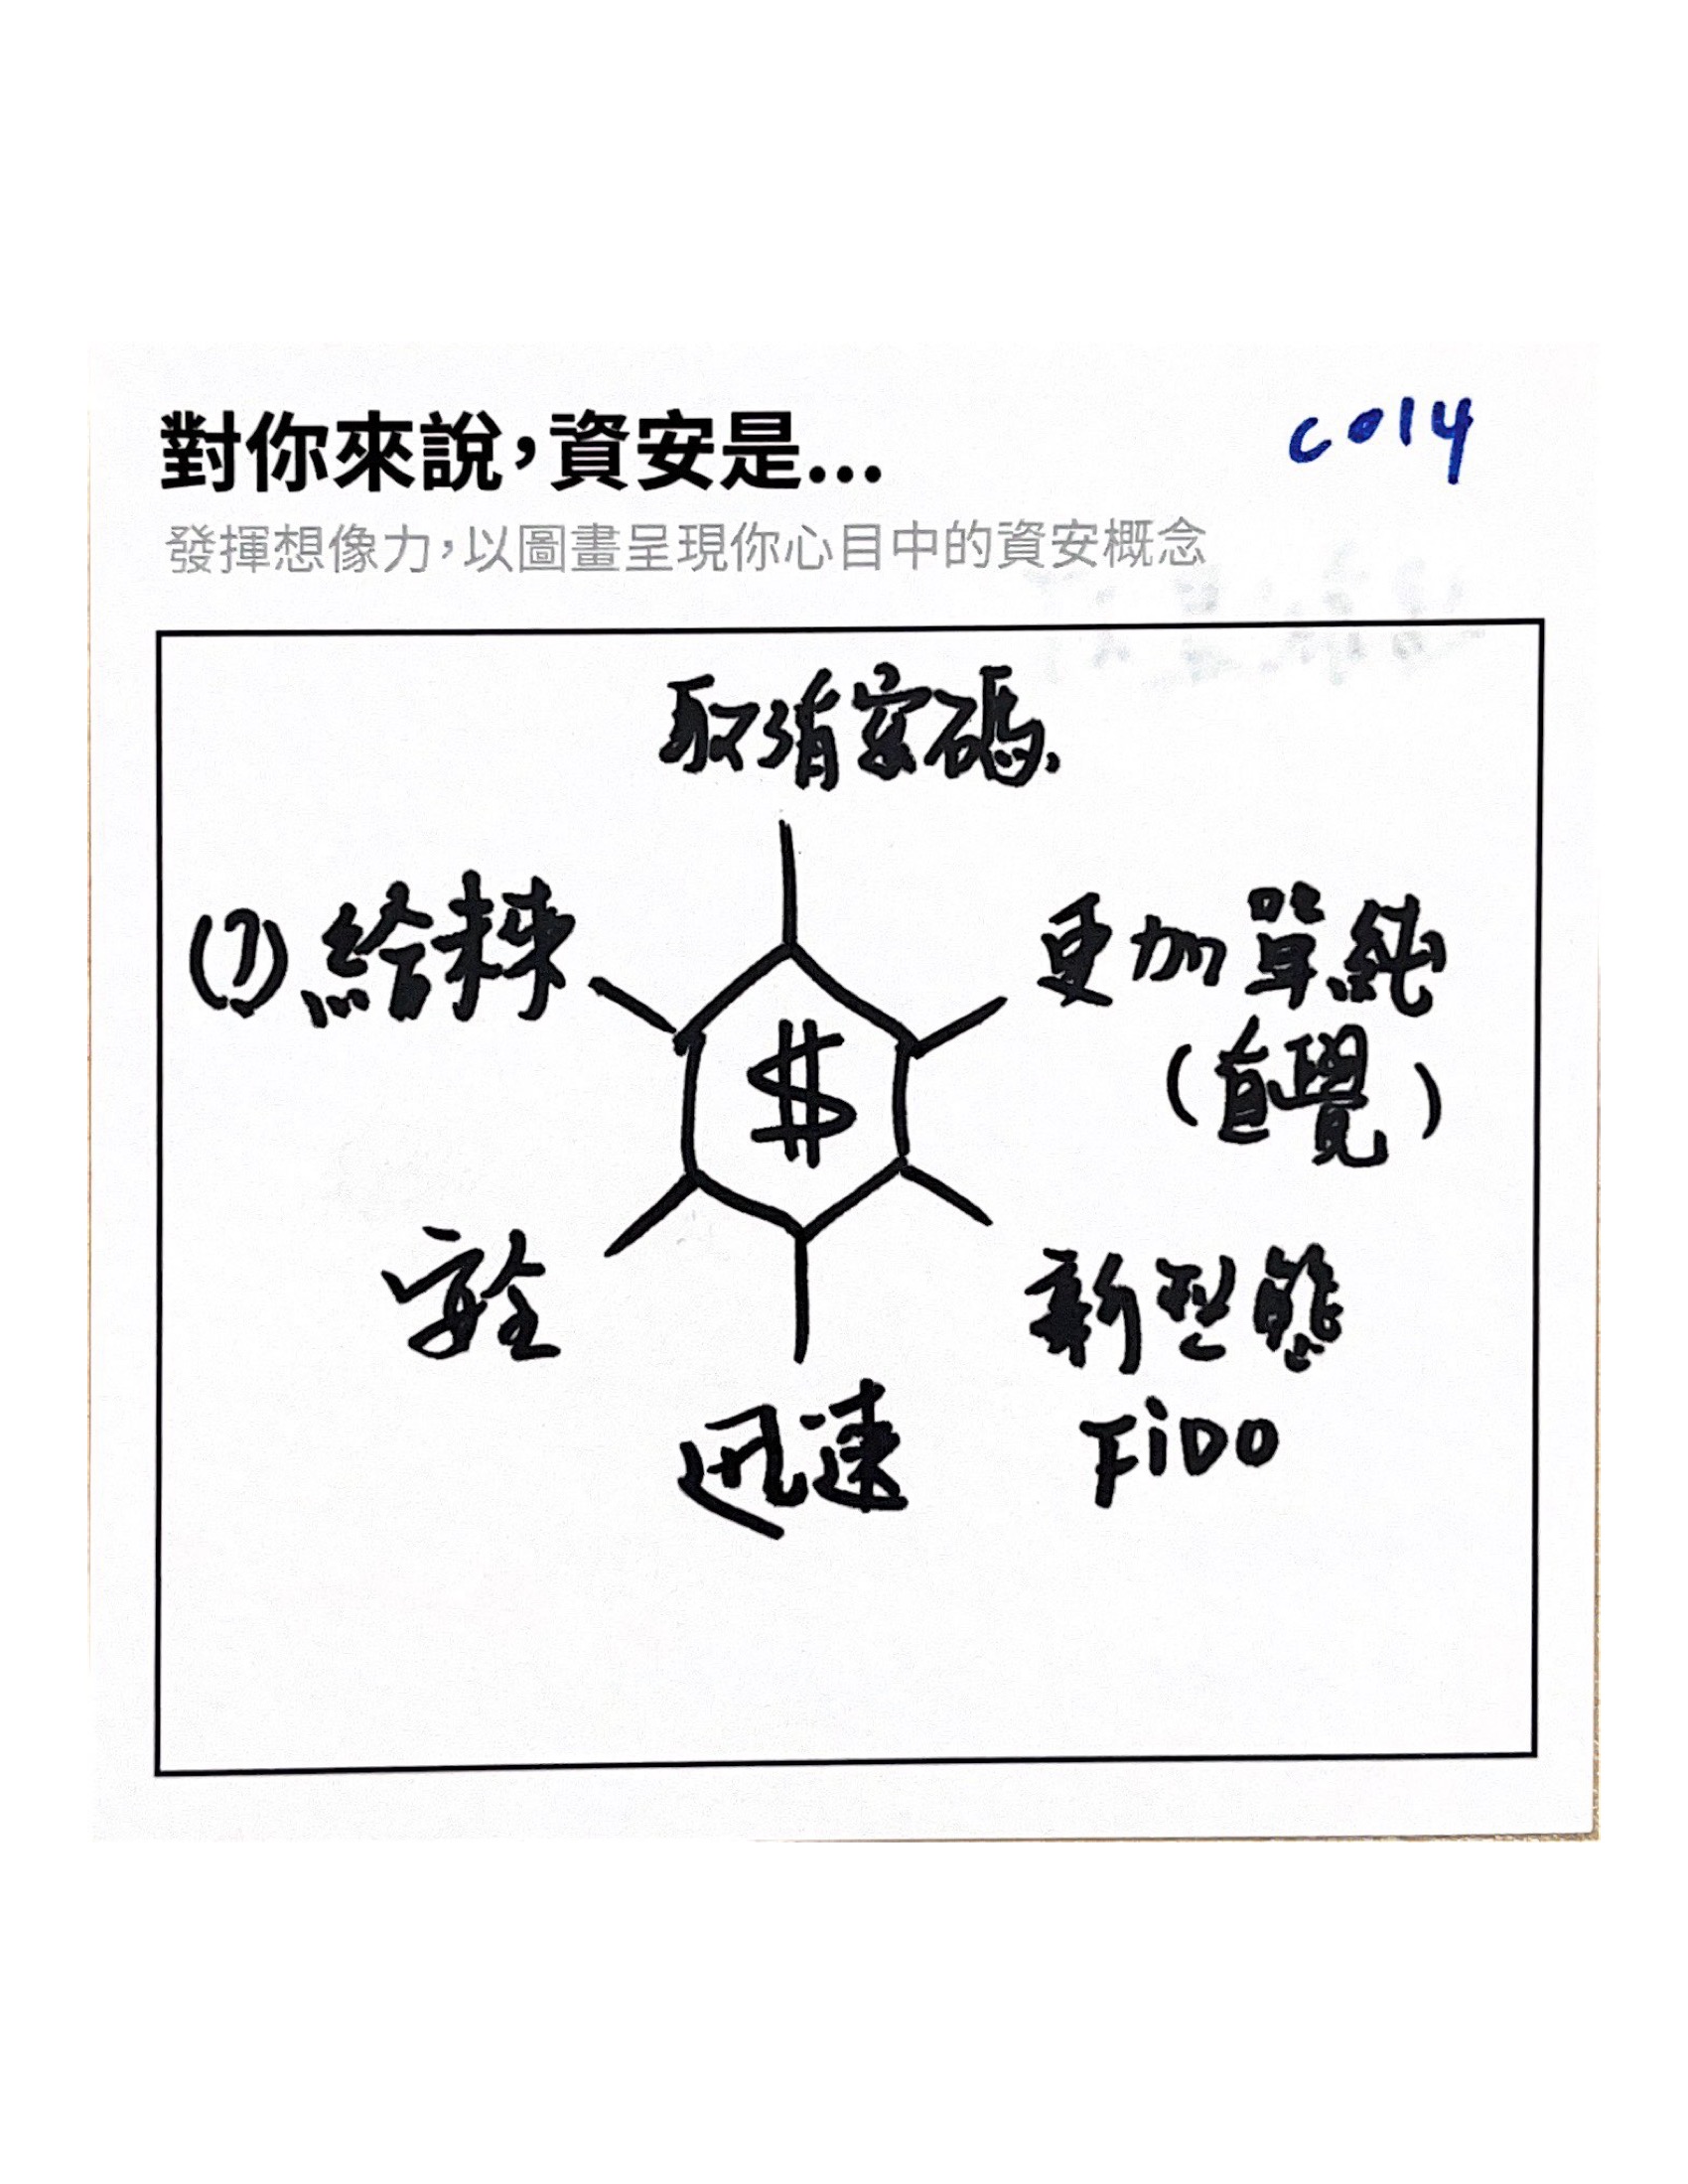 對你來說，資安是...
C014
發揮想像力，以圖畫呈現你心目中的資安概念
取消密碼
(?)
更加單純
(直覺)
安全
新型態
FiDO
迅速
$